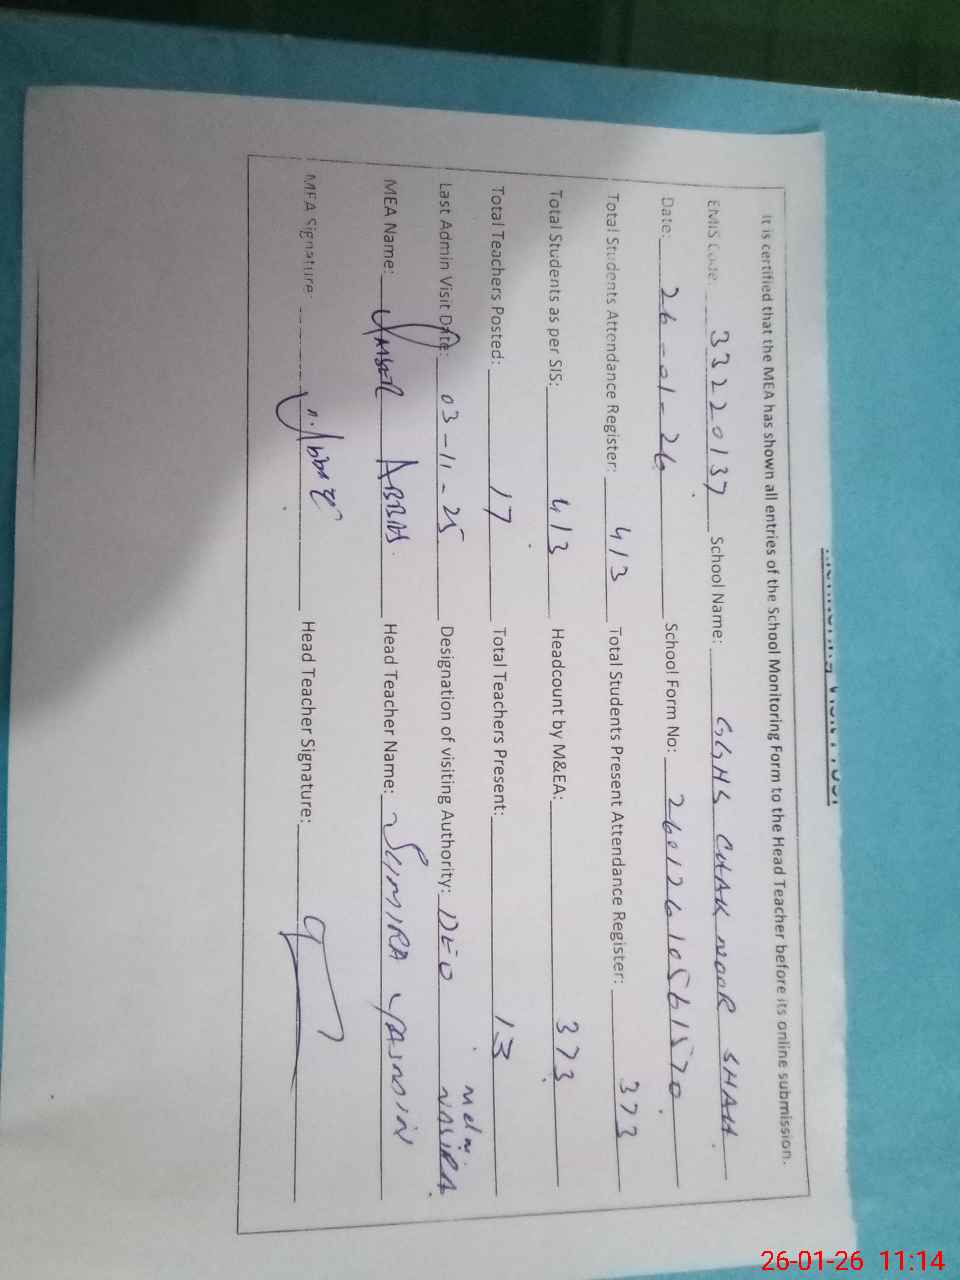 It is certified that the MEA has shown all entries of the School Monitoring Form to the Head Teacher before its online submission.
EMIS Code: 33220137 School Name: GGHS CHAK NOOR SHAH
Date: 26-01-26 School Form No: 26012610561570
Total Students Attendance Register: 413 Total Students Present Attendance Register: 373
Total Students as per SIS: 413 Headcount by M&EA: 373
Total Teachers Posted: 17 Total Teachers Present: 13
Last Admin Visit Date: 03-11-25 Designation of visiting Authority: DEO
MEA Name: ABBAS Head Teacher Name: SUMIRA YASMIN
MEA Signature: Head Teacher Signature:
26-01-26 11:14